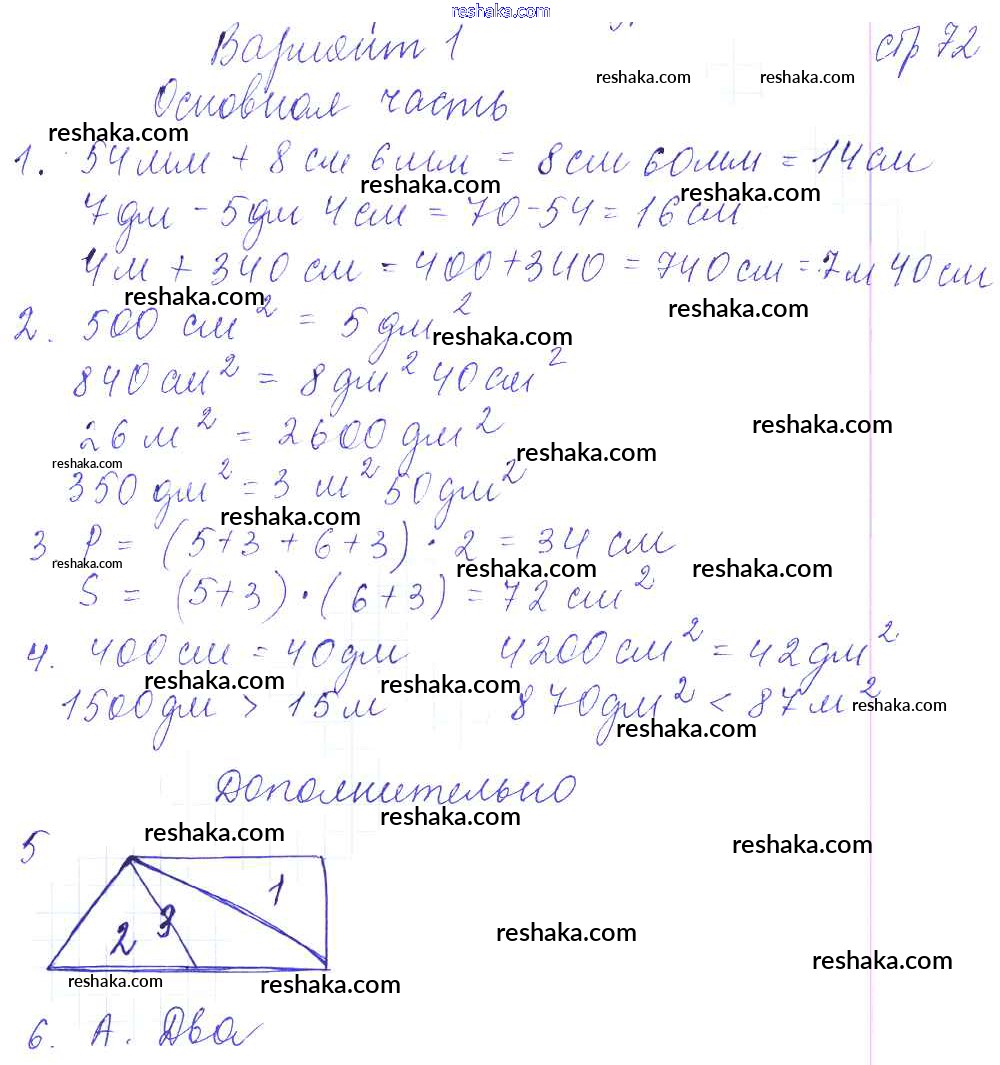 reshaka.com
Вариант 1 стр 72
reshaka.com reshaka.com
Основная часть
reshaka.com
1. 54 мм + 8 см 6 мм = 8 см 60 мм = 14 см
reshaka.com reshaka.com
7 дм - 5 дм 4 см = 70 - 54 = 16 см
4 м + 340 см = 400 + 340 = 740 см = 7 м 40 см
reshaka.com reshaka.com
2. 500 см² = 5 дм²
reshaka.com
840 см² = 8 дм² 40 см²
26 м² = 2600 дм²
reshaka.com
reshaka.com reshaka.com
350 дм² = 3 м² 50 дм²
reshaka.com
3 P = (5+3+6+3) · 2 = 34 см
reshaka.com reshaka.com reshaka.com
S = (5+3) · (6+3) = 72 см²
4. 400 см = 40 дм 4200 см² = 42 дм²
reshaka.com reshaka.com
1500 дм > 15 м 870 дм² < 87 м²
reshaka.com
reshaka.com
Дополнительно
reshaka.com
5 reshaka.com reshaka.com
1
2 3
reshaka.com
reshaka.com
reshaka.com reshaka.com
6. А. Два